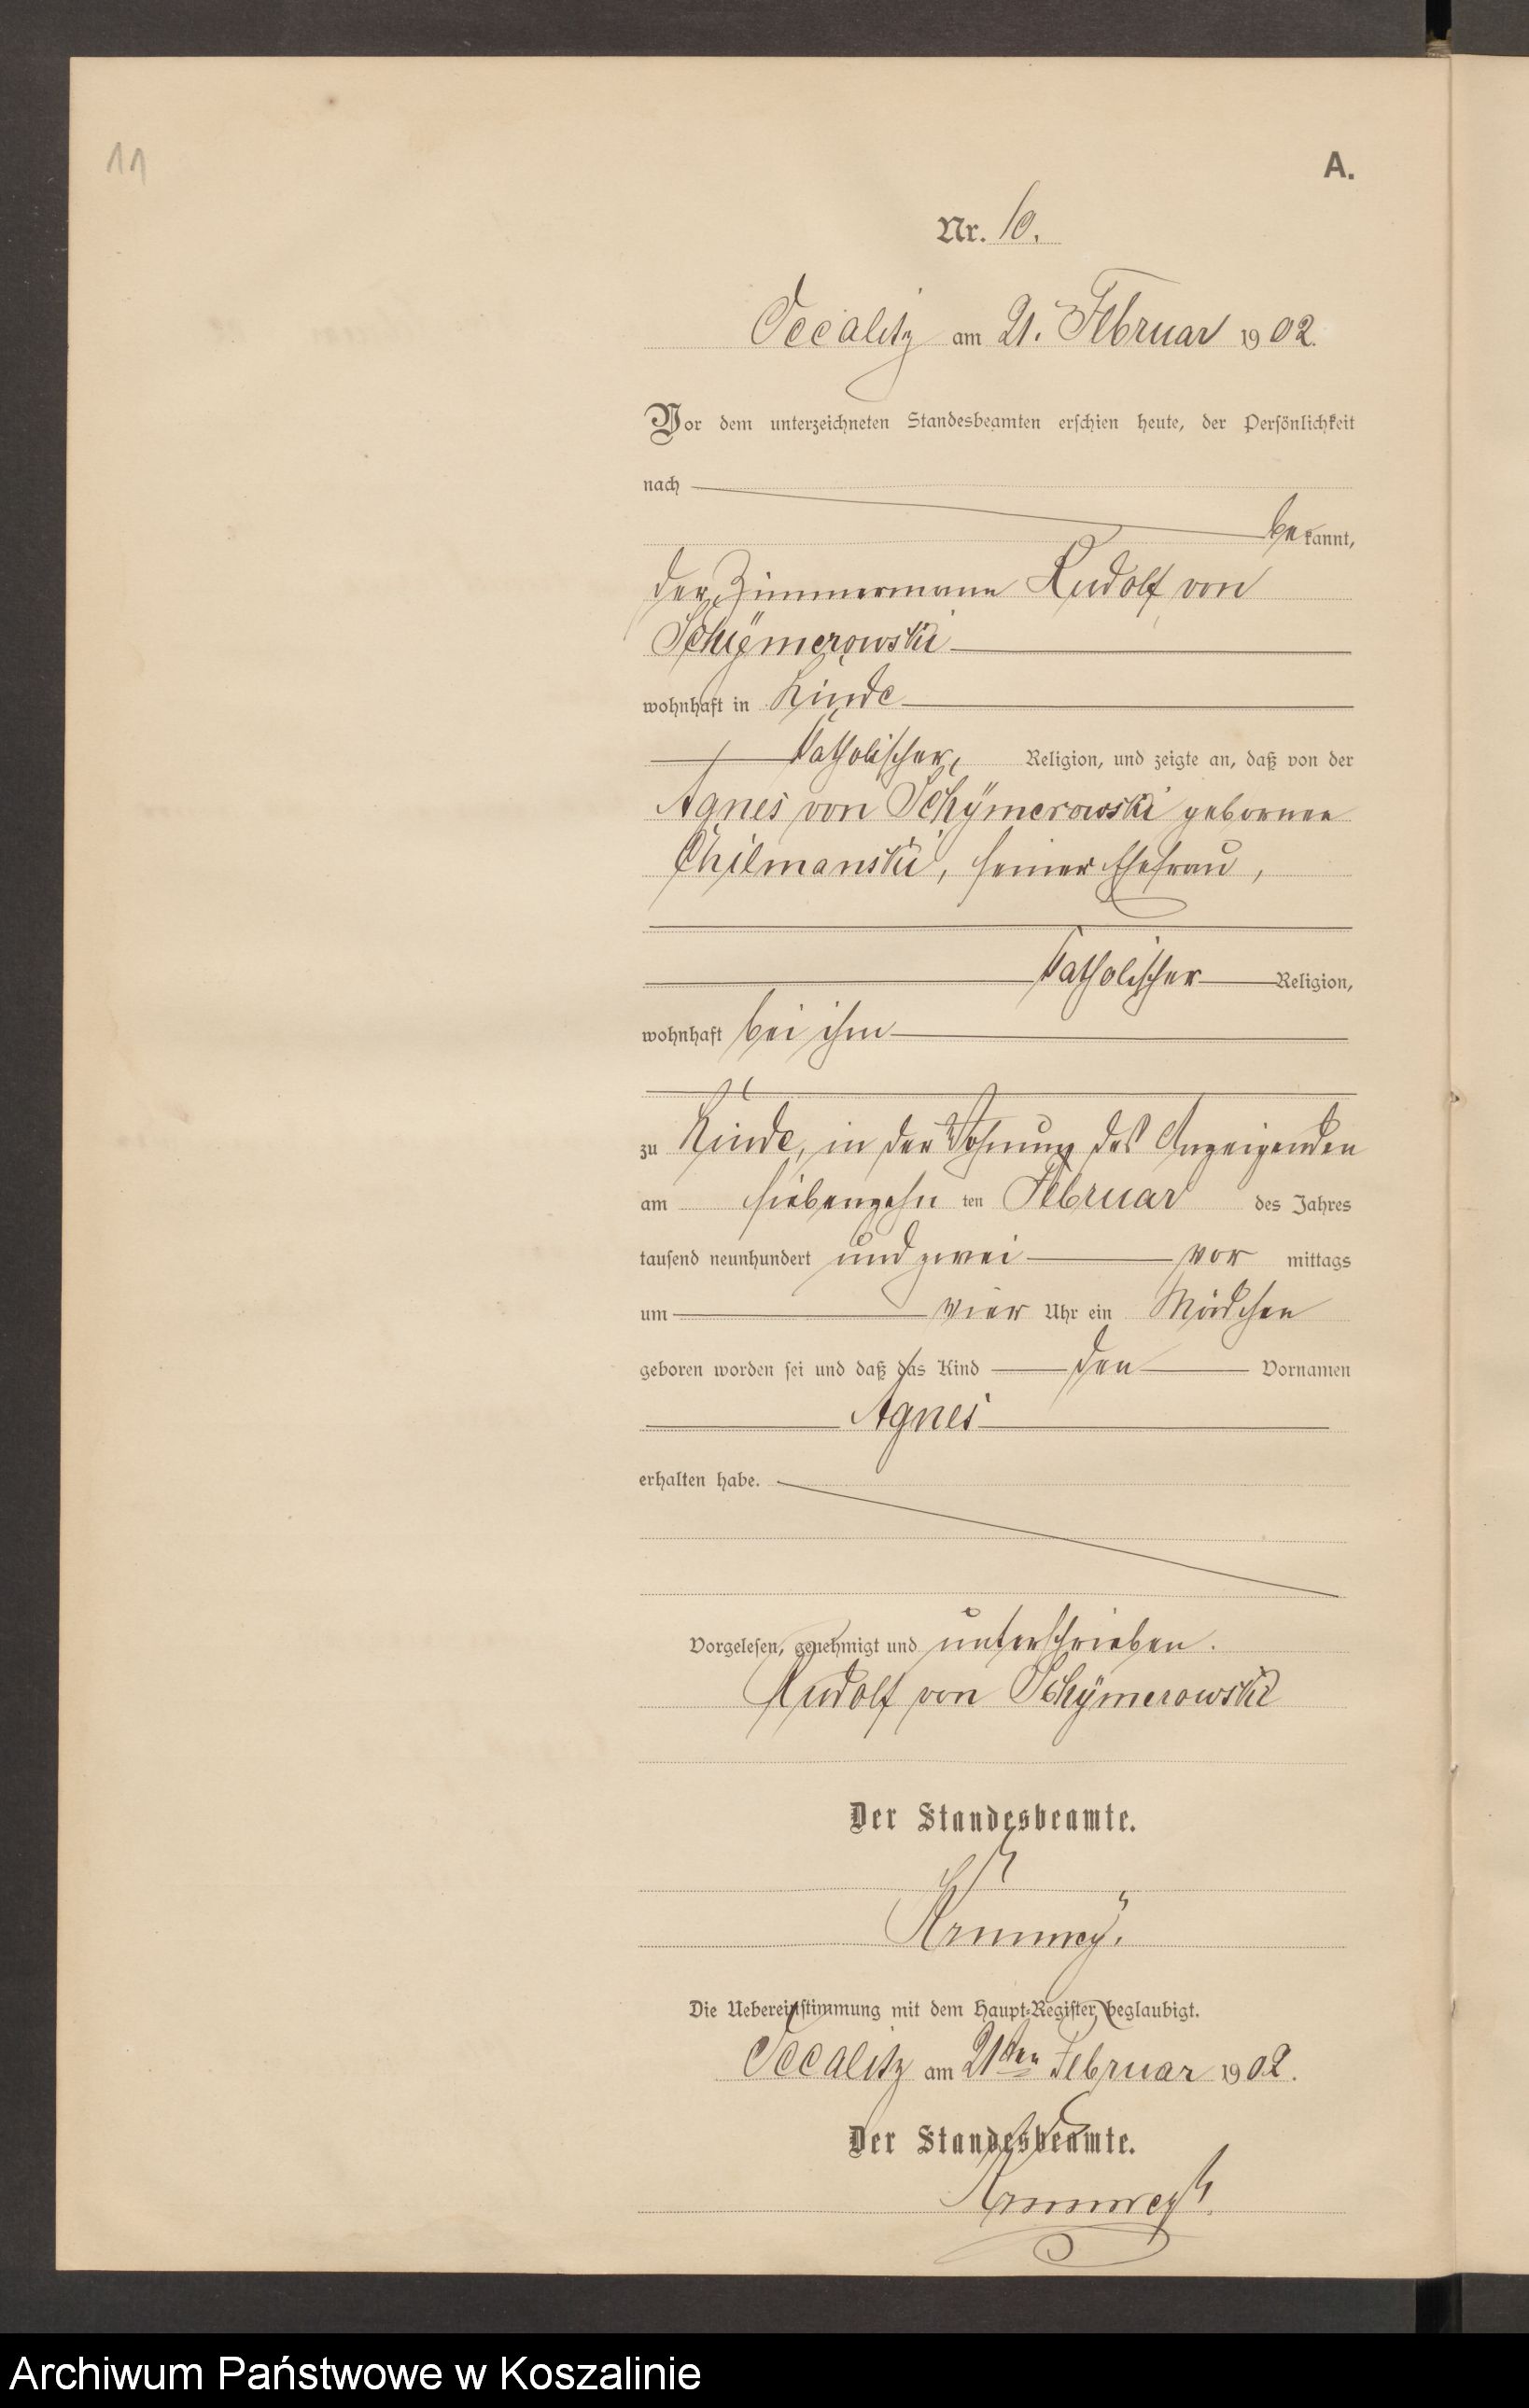 11
A.
Nr. 10.
Occalitz am 21. Februar 1902.
Vor dem unterzeichneten Standesbeamten erschien heute, der Persönlichkeit
nach
bekannt,
der Zimmermann Rudolf von
Schÿmerowski
wohnhaft in Linde
katholischer, Religion, und zeigte an, daß von der
Agnes von Schÿmerowski gebornen
Chilmanski, seiner Ehefrau,
katholischer Religion,
wohnhaft bei ihm
zu Linde, in der Wohnung des Anzeigenden
am siebenzehn ten Februar des Jahres
tausend neunhundert und zwei vor mittags
um vier Uhr ein Mädchen
geboren worden sei und daß das Kind den Vornamen
Agnes
erhalten habe.
Vorgelesen, genehmigt und unterschrieben.
Rudolf von Schÿmerowski
Der Standesbeamte.
Die Uebereinstimmung mit dem Haupt-Register beglaubigt.
Occalitz am 21ten Februar 1902.
Der Standesbeamte.
Archiwum Państwowe w Koszalinie